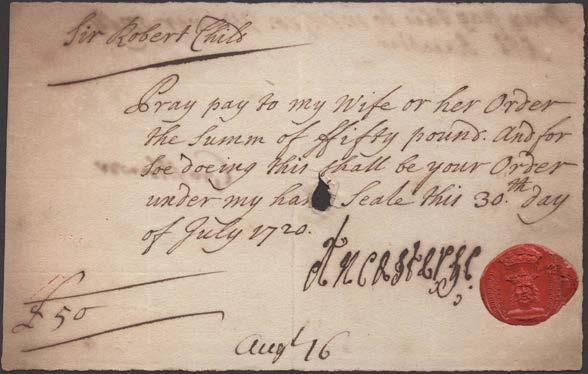 Sir Robert Child
Pray pay to my Wife or her Order
the Summ of ffifty pound. And for
Soe doeing this shall be your Order
under my hand Seale this 30.th day
of July 1720.
Ancaster
£50
Augt 16